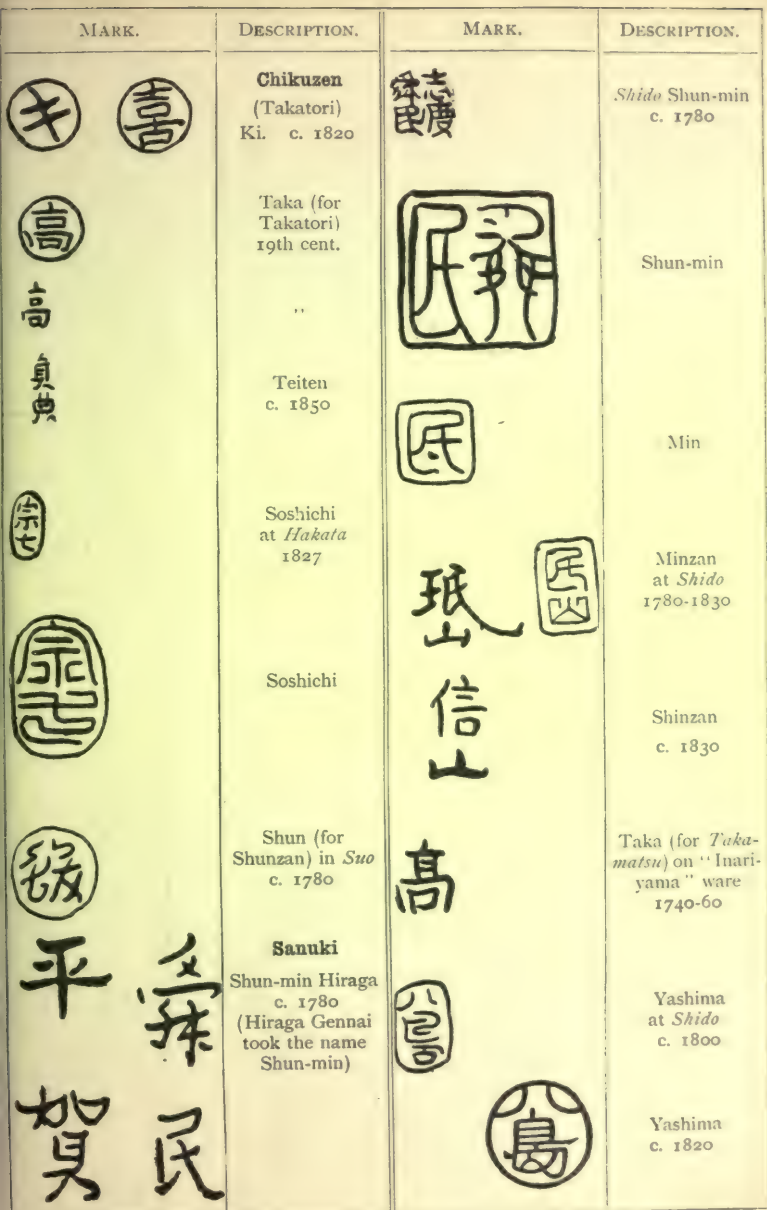 MARK.
DESCRIPTION.
キ 喜
Chikuzen
(Takatori)
Ki. c. 1820
高
Taka (for
Takatori)
19th cent.
高
,,
貞典
Teiten
c. 1850
宗七
Soshichi
at Hakata
1827
宗七
Soshichi
Shun (for
Shunzan) in Suo
c. 1780
平賀
舜民
Sanuki
Shun-min Hiraga
c. 1780
(Hiraga Gennai
took the name
Shun-min)
MARK.
DESCRIPTION.
志度
舜民
Shido Shun-min
c. 1780
民
Shun-min
民
Min
珉山
民山
Minzan
at Shido
1780-1830
信山
Shinzan
c. 1830
高
Taka (for Taka-
matsu) on "Inari-
yama" ware
1740-60
八島
Yashima
at Shido
c. 1800
八島
Yashima
c. 1820